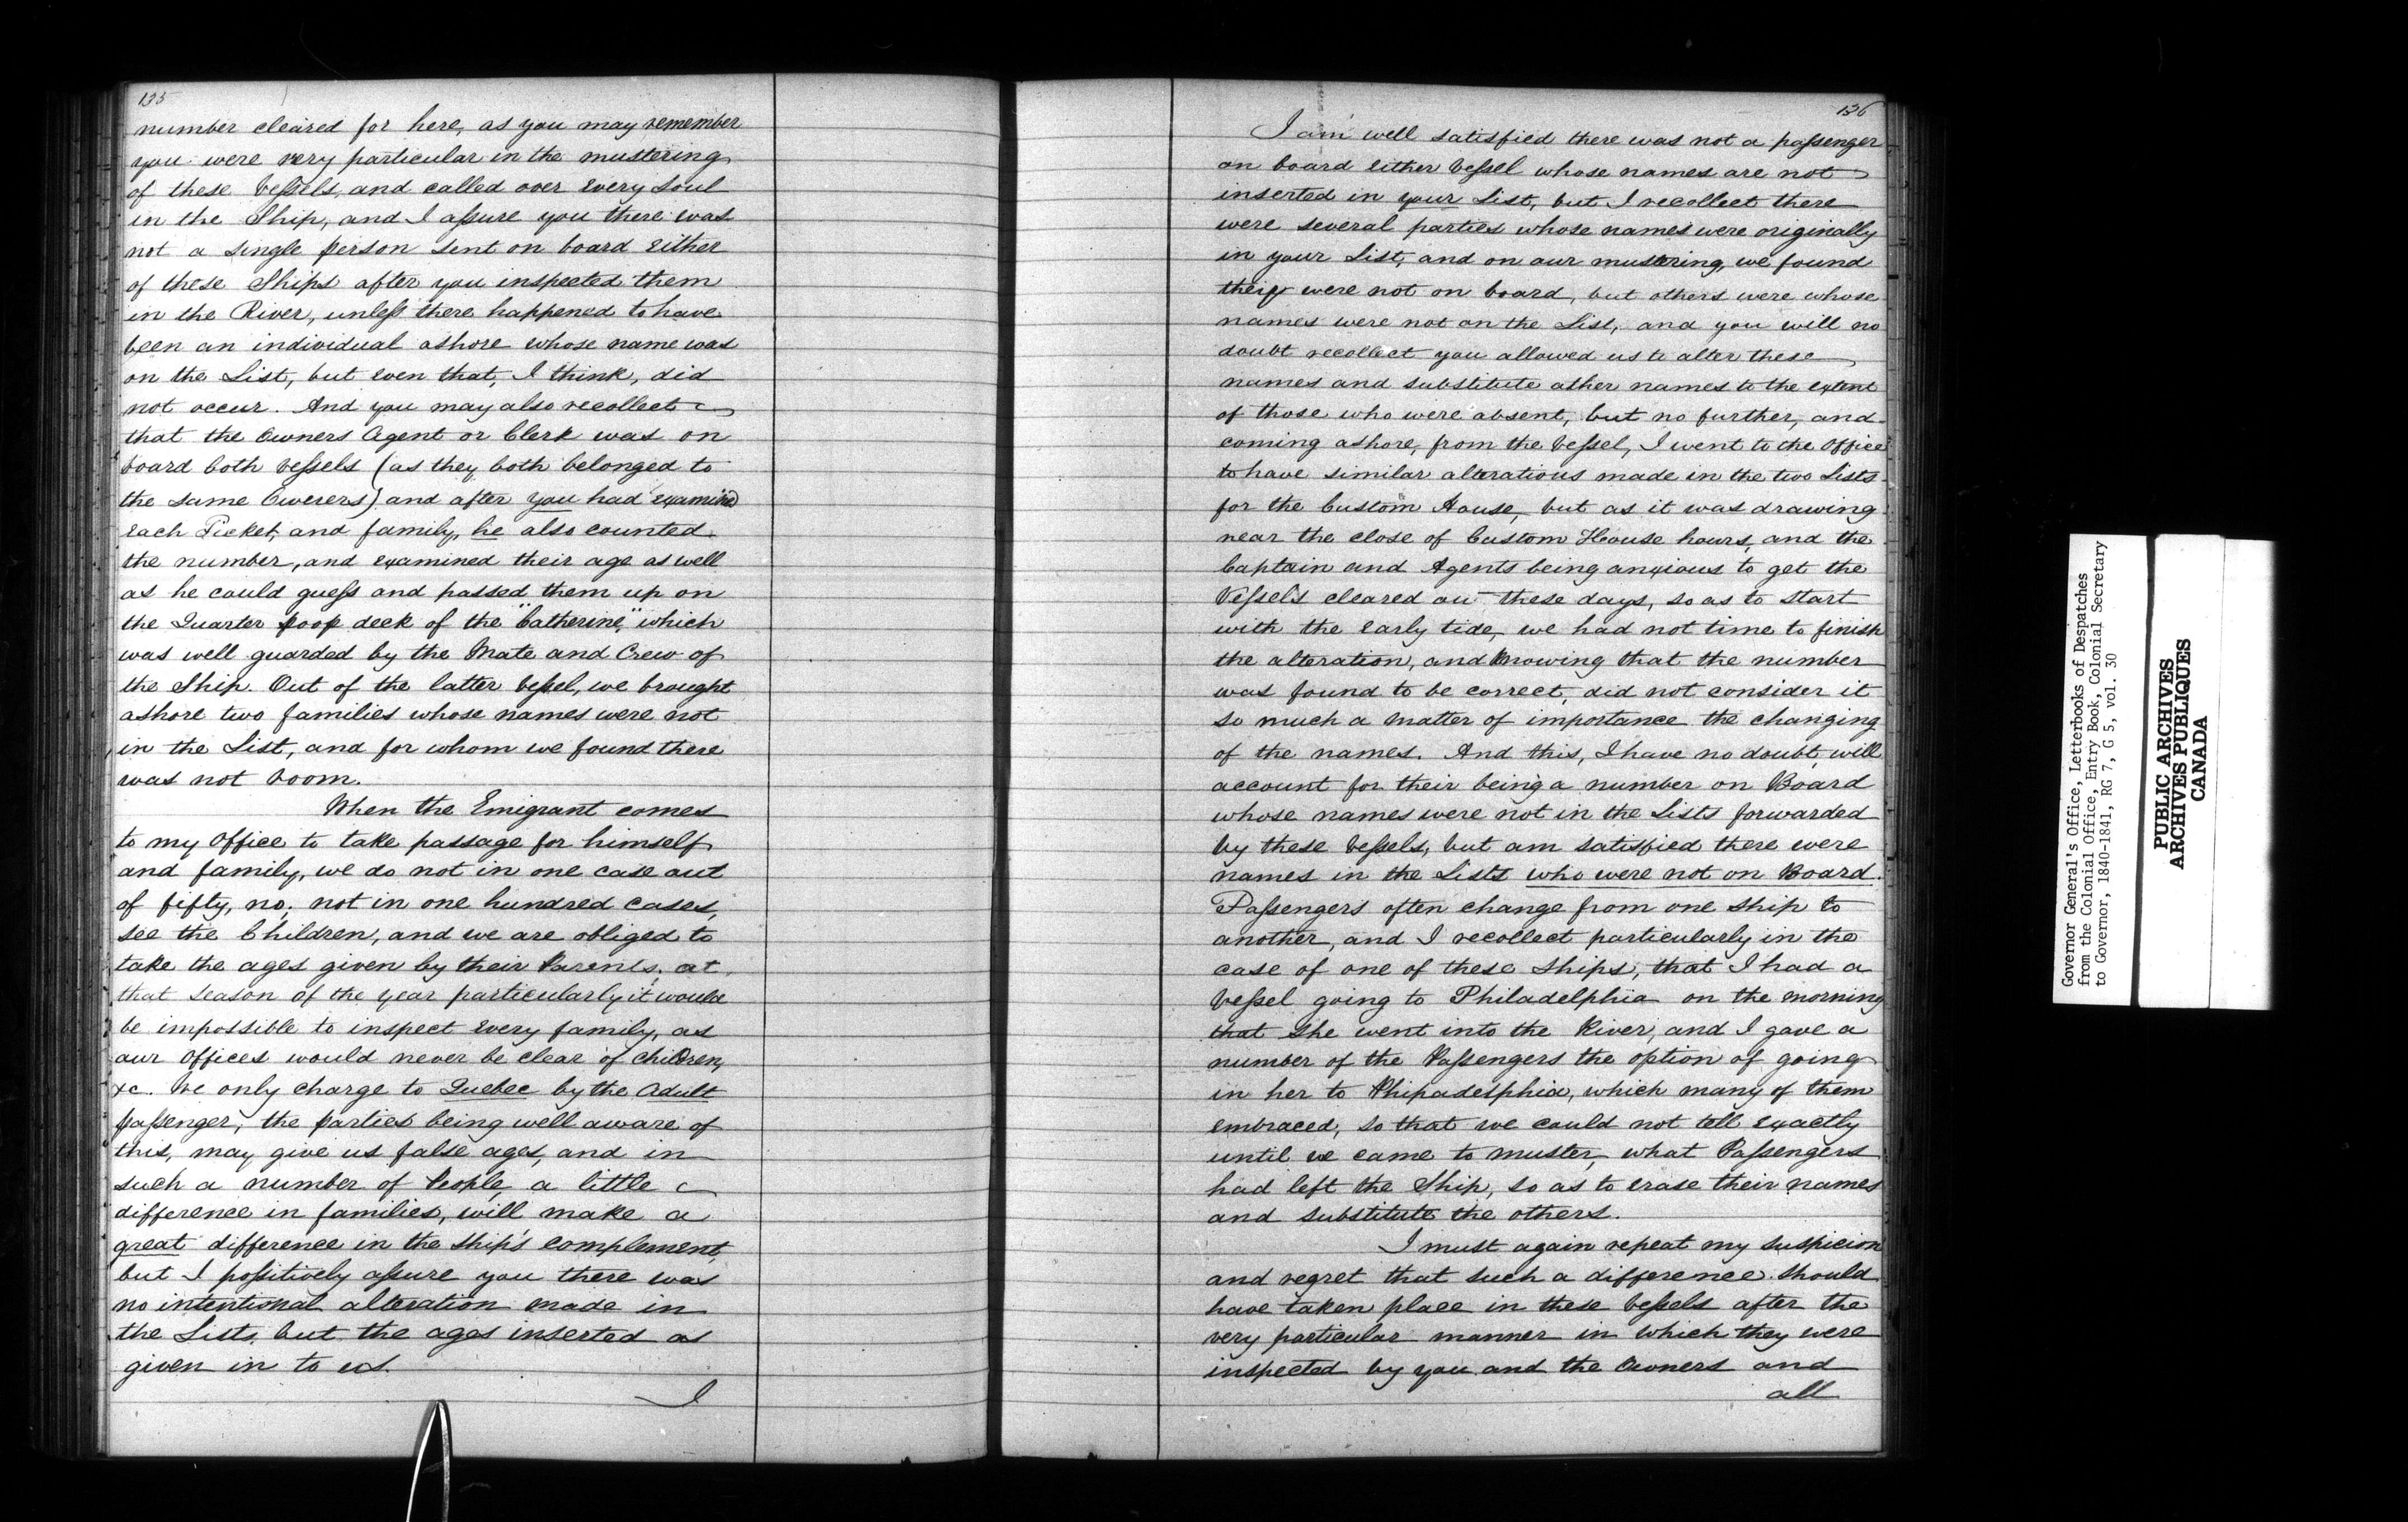 135
number cleared for here, as you may remember
you were very particular in the mustering
of these Vessels, and called over every Soul
in the Ship, and I assure you there was
not a single person sent on board either
of these Ships after you inspected them
in the River, unless there happened to have
been an individual ashore whose name was
on the List, but even that, I think, did
not occur. And you may also recollect
that the Owners Agent or Clerk was on
board both Vessels (as they both belonged to
the same Owerers) and after you had examined
each Ticket, and family, he also counted
the number, and examined their age as well
as he could guess and passed them up on
the Quarter poop deck of the "Catherine," which
was well guarded by the Mate and Crew of
the Ship. Out of the latter Vessel, we brought
ashore two families whose names were not
in the List, and for whom we found there
was not room.
When the Emigrant comes
to my Office to take passage for himself
and family, we do not in one case out
of fifty, no; not in one hundred cases,
see the Children, and we are obliged to
take the ages given by their Parents. at
that season of the year particularly it would
be impossible to inspect every family, as
our Offices would never be clear of children,
&c. We only charge to Quebec by the Adult
passenger, the parties being well aware of
this, may give us false ages, and in
such a number of People, a little
difference in families, will make a
great difference in the ship's complement,
but I positively assure you there was
no intentional alteration made in
the Lists, but the ages inserted as
given in to us.
I
136
I am well satisfied there was not a passenger
on board either Vessel whose names are not
inserted in your List, but I recollect there
were several parties whose names were originally
in your List, and on our mustering, we found
they were not on board, but others were whose
names were not on the List, and you will no
doubt recollect you allowed us to alter these
names and substitute other names to the extent
of those who were absent, but no further, and
coming ashore, from the Vessel, I went to the Office
to have similar alterations made in the two Lists
for the Custom House, but as it was drawing
near the close of Custom House hours, and the
Captain and Agents being anxious to get the
Vessels cleared out these days, so as to start
with the early tide, we had not time to finish
the alteration, and knowing that the number
was found to be correct, did not consider it
so much a matter of importance the changing
of the names. And this, I have no doubt, will
account for their being a number on Board
whose names were not in the Lists forwarded
by these Vessels, but am satisfied there were
names in the Lists who were not on Board.
Passengers often change from one Ship to
another, and I recollect particularly in the
case of one of these Ships, that I had a
Vessel going to Philadelphia on the morning
that she went into the River, and I gave a
number of the Passengers the option of going
in her to Phipadelphia, which many of them
embraced, so that we could not tell exactly
until we came to muster, what Passengers
had left the Ship, so as to erase their names
and substitute the others.
I must again repeat my suspicion
and regret that such a difference should
have taken place in these Vessels after the
very particular manner in which they were
inspected by you and the Owners and
all
Governor General's Office, Letterbooks of Despatches
from the Colonial Office, Entry Book, Colonial Secretary
to Governor, 1840-1841, RG 7, G 5, vol. 30
PUBLIC ARCHIVES
ARCHIVES PUBLIQUES
CANADA